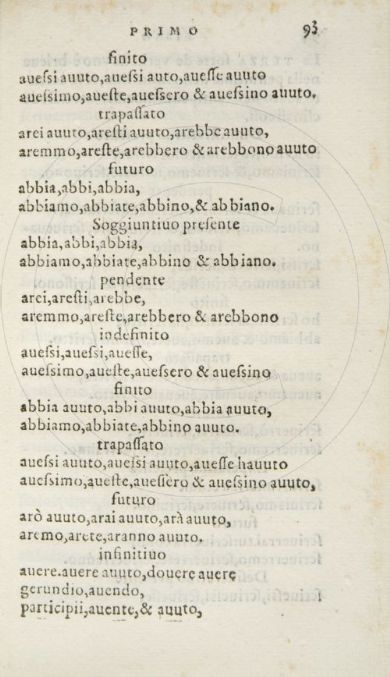 PRIMO 93
finito
auessi auuto,auessi auto,auesse auuto
auessimo,aueste,auessero & auessino auuto.
trapassato
arei auuto,aresti auuto,arebbe auuto,
aremmo,areste,arebbero & arebbono auuto
futuro
abbia,abbi,abbia,
abbiamo,abbiate,abbino,& abbiano.
Soggiuntiuo presente
abbia,abbi,abbia,
abbiamo,abbiate,abbino & abbiano.
pendente
arei,aresti,arebbe,
aremmo,areste,arebbero & arebbono
indefinito
auessi,auessi,auesse,
auessimo,aueste,auessero & auessino
finito
abbia auuto,abbi auuto,abbia auuto,
abbiamo,abbiate,abbino auuto.
trapassato
auessi auuto,auessi auuto,auesse hauuto
auessimo,aueste,auessero & auessino auuto,
futuro
arò auuto,arai auuto,arà auuto,
aremo,arete,aranno auuto.
infinitiuo
auere.auere auuto,douere auere
gerundio,auendo,
participii,auente,& auuto,